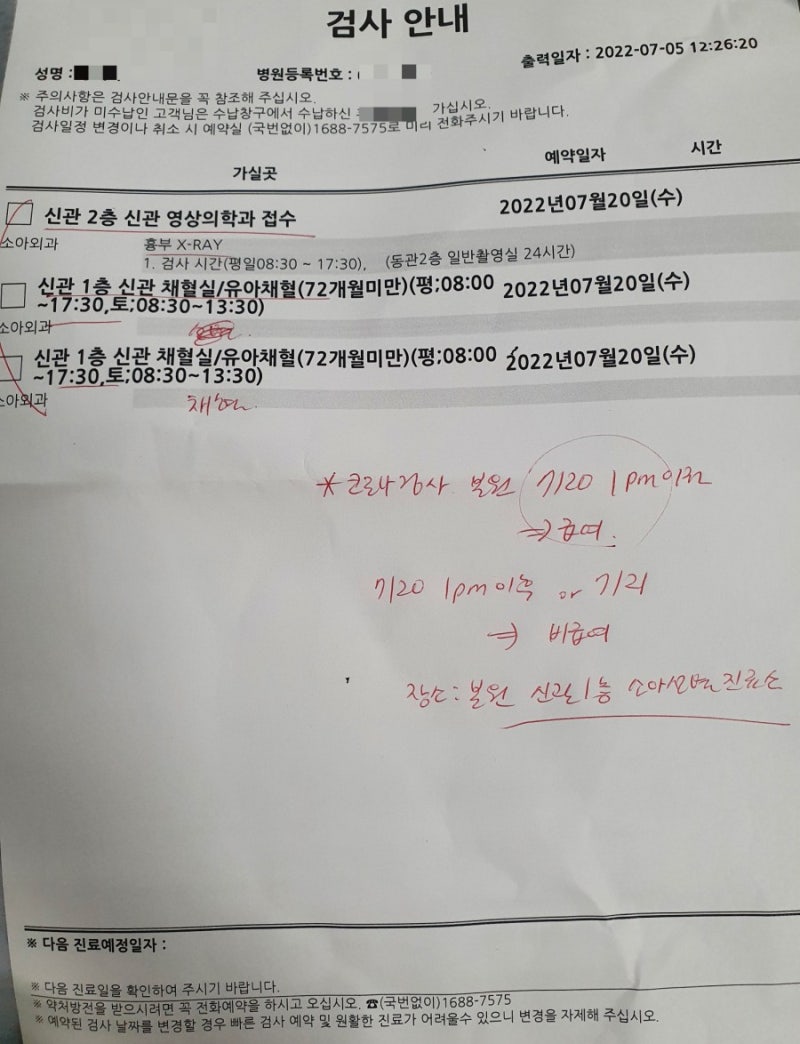 검사 안내
출력일자 : 2022-07-05 12:26:20
성명 : 병원등록번호 :
※ 주의사항은 검사안내문을 꼭 참조해 주십시오.
검사비가 미수납인 고객님은 수납창구에서 수납하신 가십시오.
검사일정 변경이나 취소 시 예약실 (국번없이)1688-7575로 미리 전화주시기 바랍니다.
가실곳 예약일자 시간
신관 2층 신관 영상의학과 접수 2022년07월20일(수)
소아외과 흉부 X-RAY
1. 검사 시간(평일08:30 ~ 17:30), (동관2층 일반촬영실 24시간)
신관 1층 신관 채혈실/유아채혈(72개월미만)(평;08:00 2022년07월20일(수)
~17:30,토;08:30~13:30)
소아외과
신관 1층 신관 채혈실/유아채혈(72개월미만)(평;08:00 2022년07월20일(수)
~17:30,토;08:30~13:30)
소아외과 채혈
* 코로나검사 본원 7/20 1pm이전
⇒ 급여.
7/20 1pm이후 or 7/21
⇒ 비급여
장소: 본원 신관1층 소아선별진료소
※ 다음 진료예정일자 :
※ 다음 진료일을 확인하여 주시기 바랍니다.
※ 약처방전을 받으시려면 꼭 전화예약을 하시고 오십시오. ☎(국번없이)1688-7575
※ 예약된 검사 날짜를 변경할 경우 빠른 검사 예약 및 원활한 진료가 어려울수 있으니 변경을 자제해 주십시오.